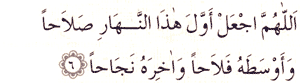 اَللّٰهُمَّ اجْعَلْ اَوَّلَ هٰذَا النَّهَارِ صَلَاحاً
وَاَوْسَطَهُ فَلَاحاً وَاٰخِرَهُ نَجَاحاً ﴿٦﴾